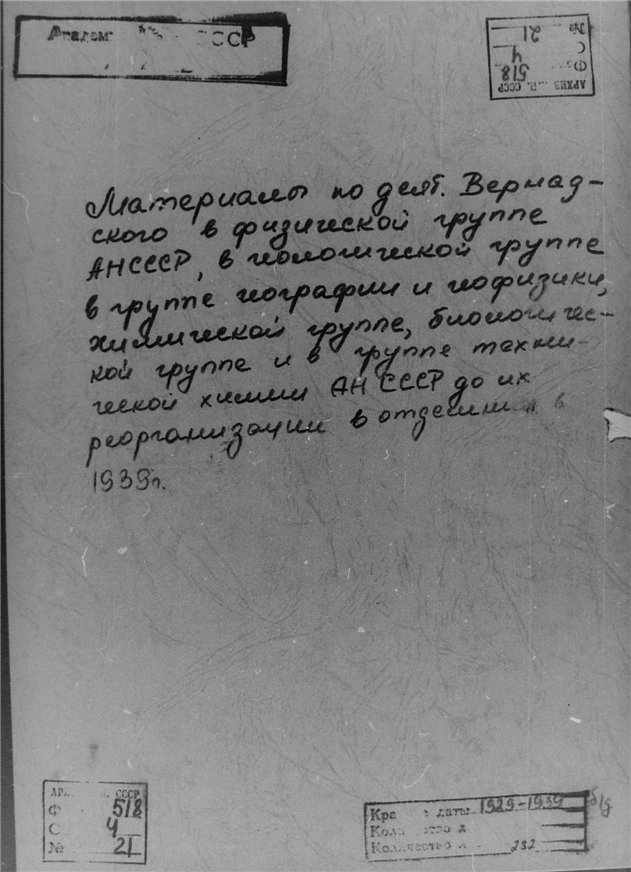 СССР
№ 21
С 4
Ф 518
АРХИВ СССР
Материалы по деят. Вернад-
ского в физической группе
АНСССР, в геологической группе
в группе географии и геофизики,
химической группе, биологичес-
кой группе и в группе техни-
ческой химии АН СССР до их
реорганизации в отделения в
1939г.
СССР
Ф 518
С 4
№ 21
даты 1929-1939 б/д
232